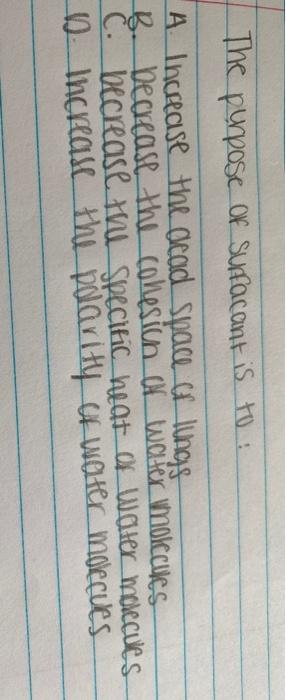 The purpose of surfacant is to :
A. Increase the dead space of lungs
B. Decrease the cohesion of water molecules
C. Decrease the specific heat of water molecules
D. Increase the polarity of water molecules